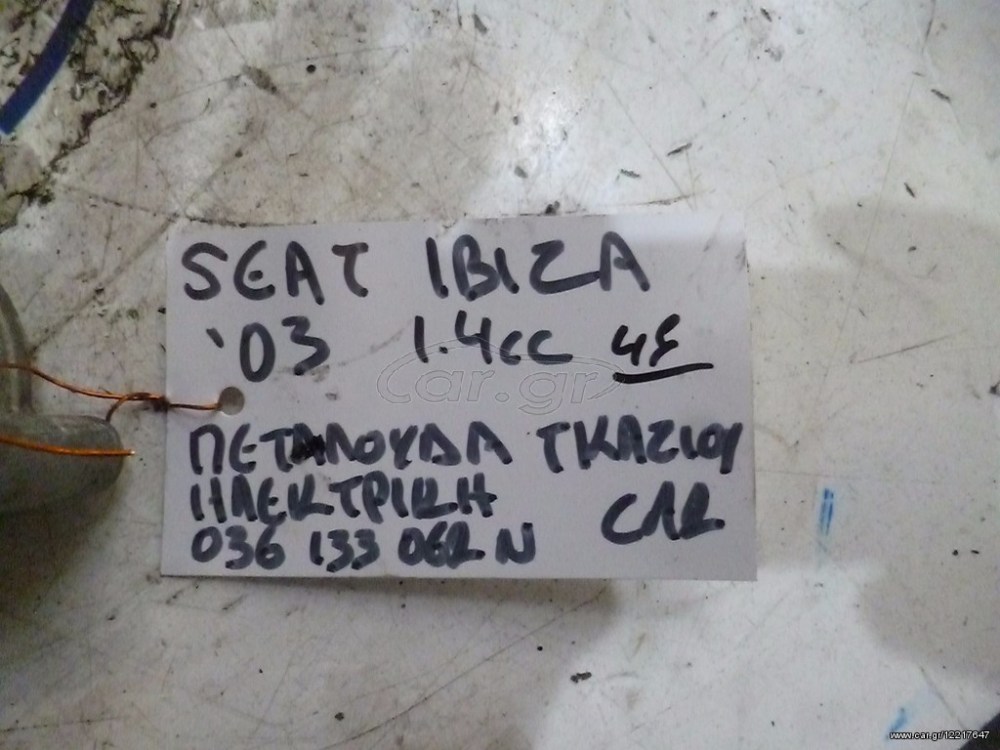 SEAT IBIZA
'03 1.4cc
car.gr
ΠΕΤΑΛΟΥΔΑ ΓΚΑΖΙΟΥ
ΗΛΕΚΤΡΙΚΗ
036 133 062 N
www.car.gr/12217647